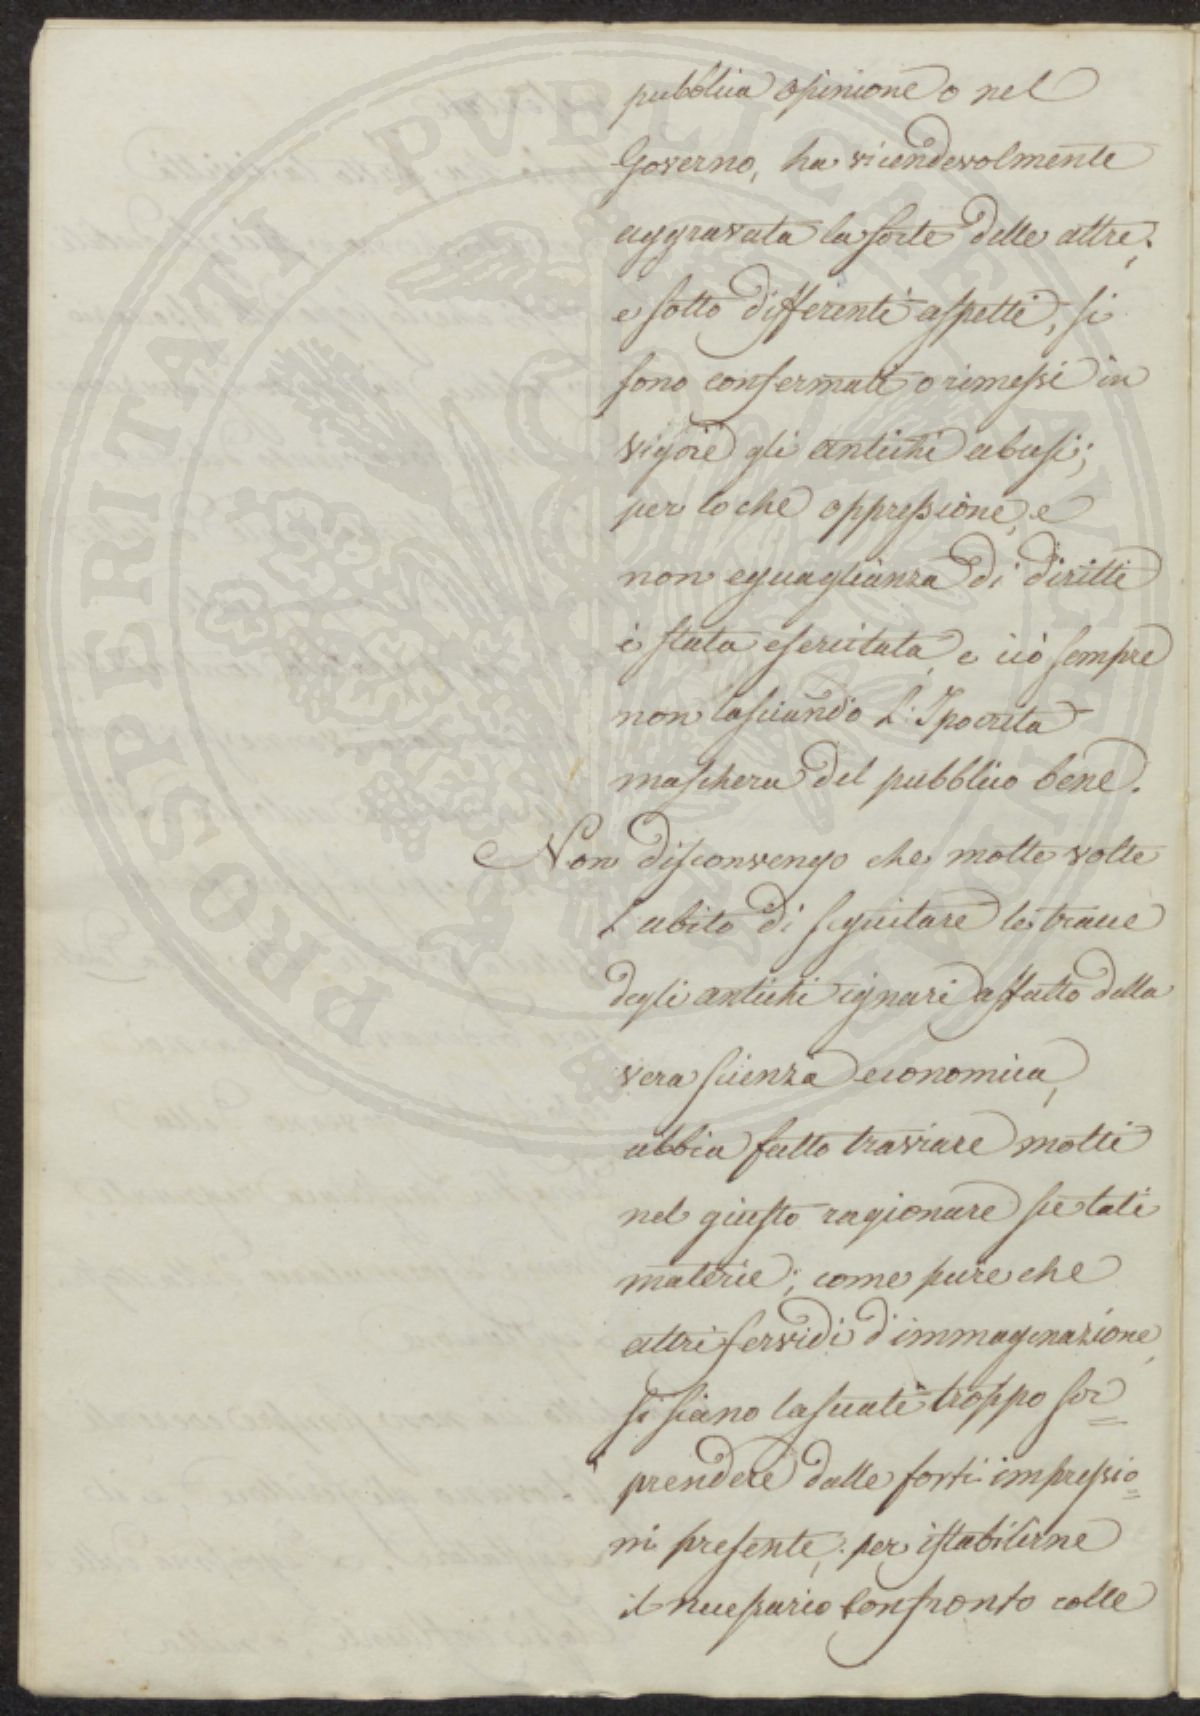 pubblica opinione o nel
Governo, ha vicendevolmente
aggravata la sorte delle altre;
e sotto differenti aspetti, si
sono confermati o rimessi in
vigore gli antichi abusi;
per lo che oppressione, e
non eguaglianza di diritti
è stata esercitata, e ciò sempre
non lasciando l'Ipocrita
maschera del pubblico bene.
Non disconvengo che molte volte
l'abito di seguitare le tracce
degli antichi ignari affatto della
vera scienza economica,
abbia fatto traviare molti
nel giusto ragionare su tali
materie; come pure che
altri fervidi d'immaginazione,
si siano lasciati troppo sor=
prendere dalle forti impressio=
ni presenti; per istabilirne
il necessario confronto colle
PROSPERITATI PVBLICAE AVGENDAE